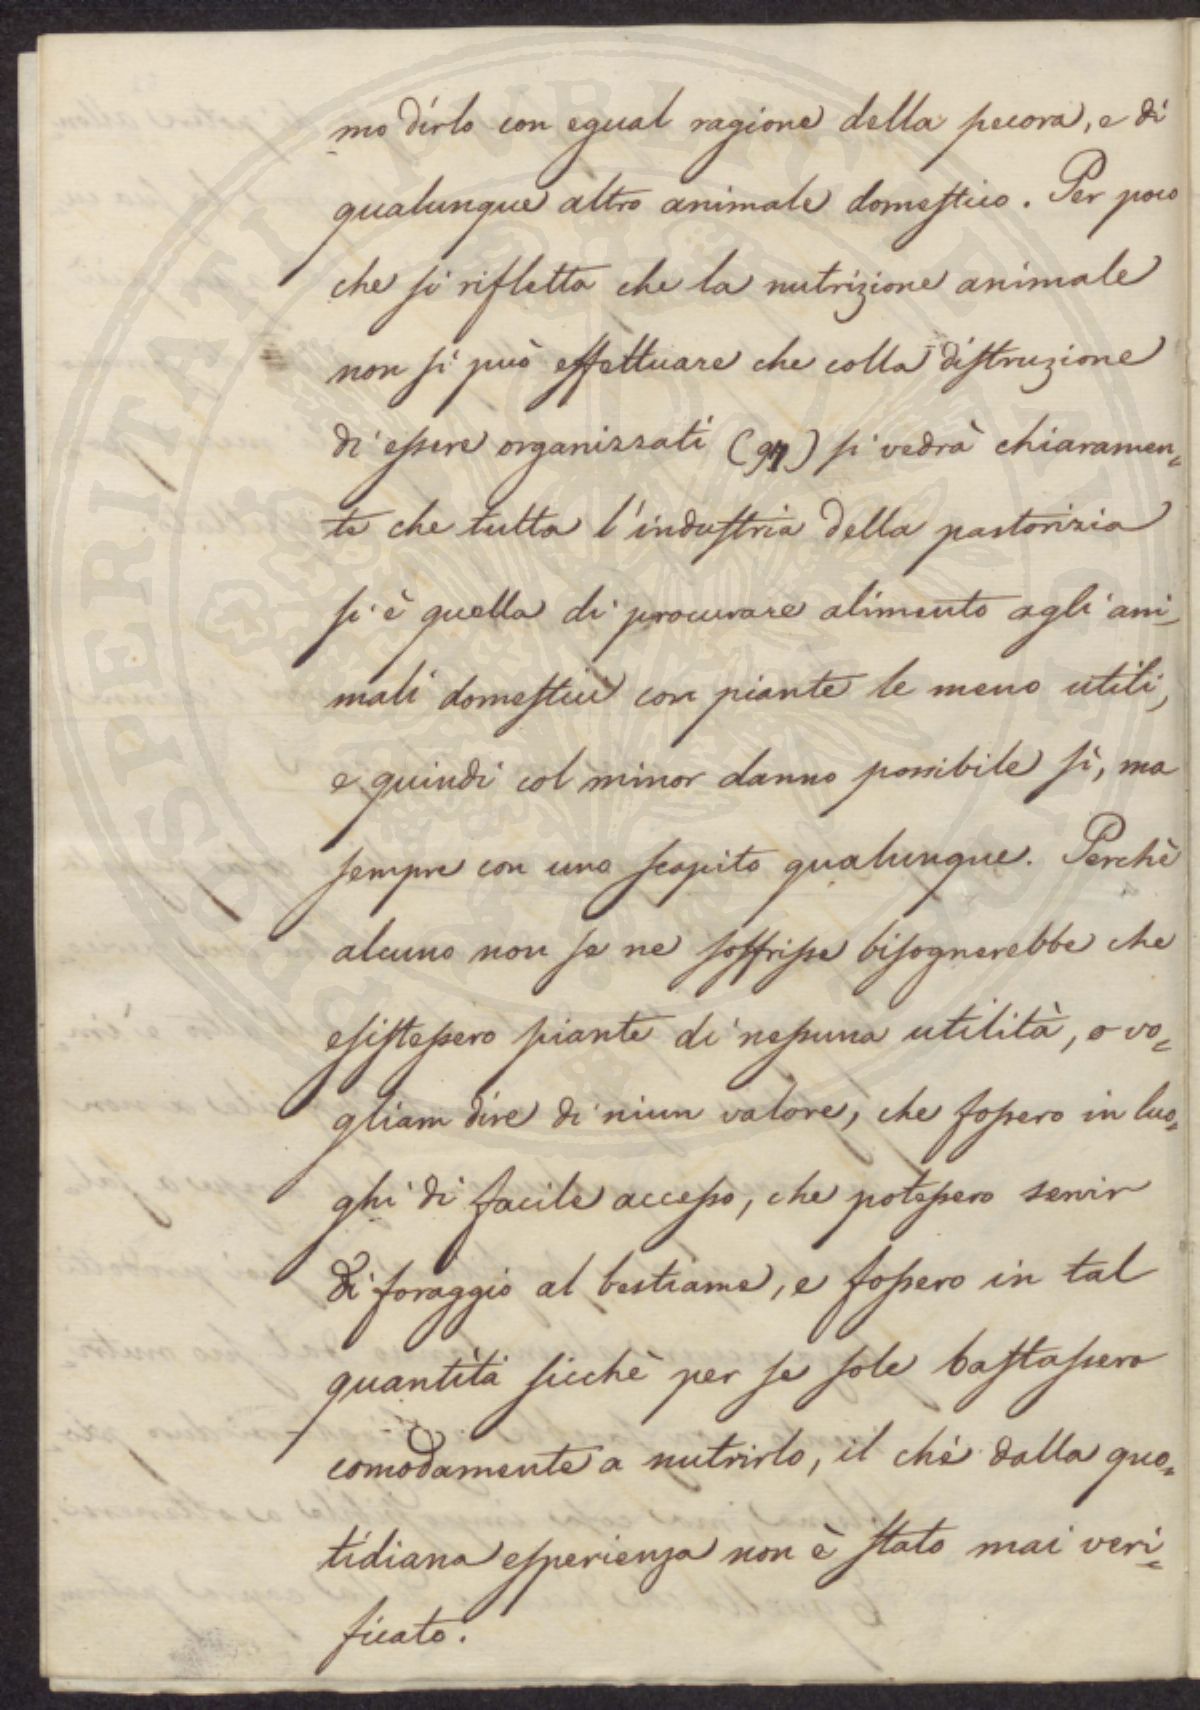 mo dirlo con egual ragione della pecora, e di
qualunque altro animale domestico. Per poco
che si rifletta che la nutrizione animale
non si può effettuare che colla distruzione
di esseri organizzati (97) si vedrà chiaramen=
te che tutta l'industria della pastorizia
si è quella di procurare alimento agli ani=
mali domestici con piante le meno utili,
e quindi col minor danno possibile sì, ma
sempre con uno scapito qualunque. Perchè
alcuno non se ne soffrisse bisognerebbe che
esistessero piante di nessuna utilità, o vo=
gliam dire di niun valore, che fossero in luo=
ghi di facile accesso, che potessero servir
di foraggio al bestiame, e fossero in tal
quantità sicchè per se sole bastassero
comodamente a nutrirlo, il chè dalla quo=
tidiana esperienza non è stato mai veri=
ficato.